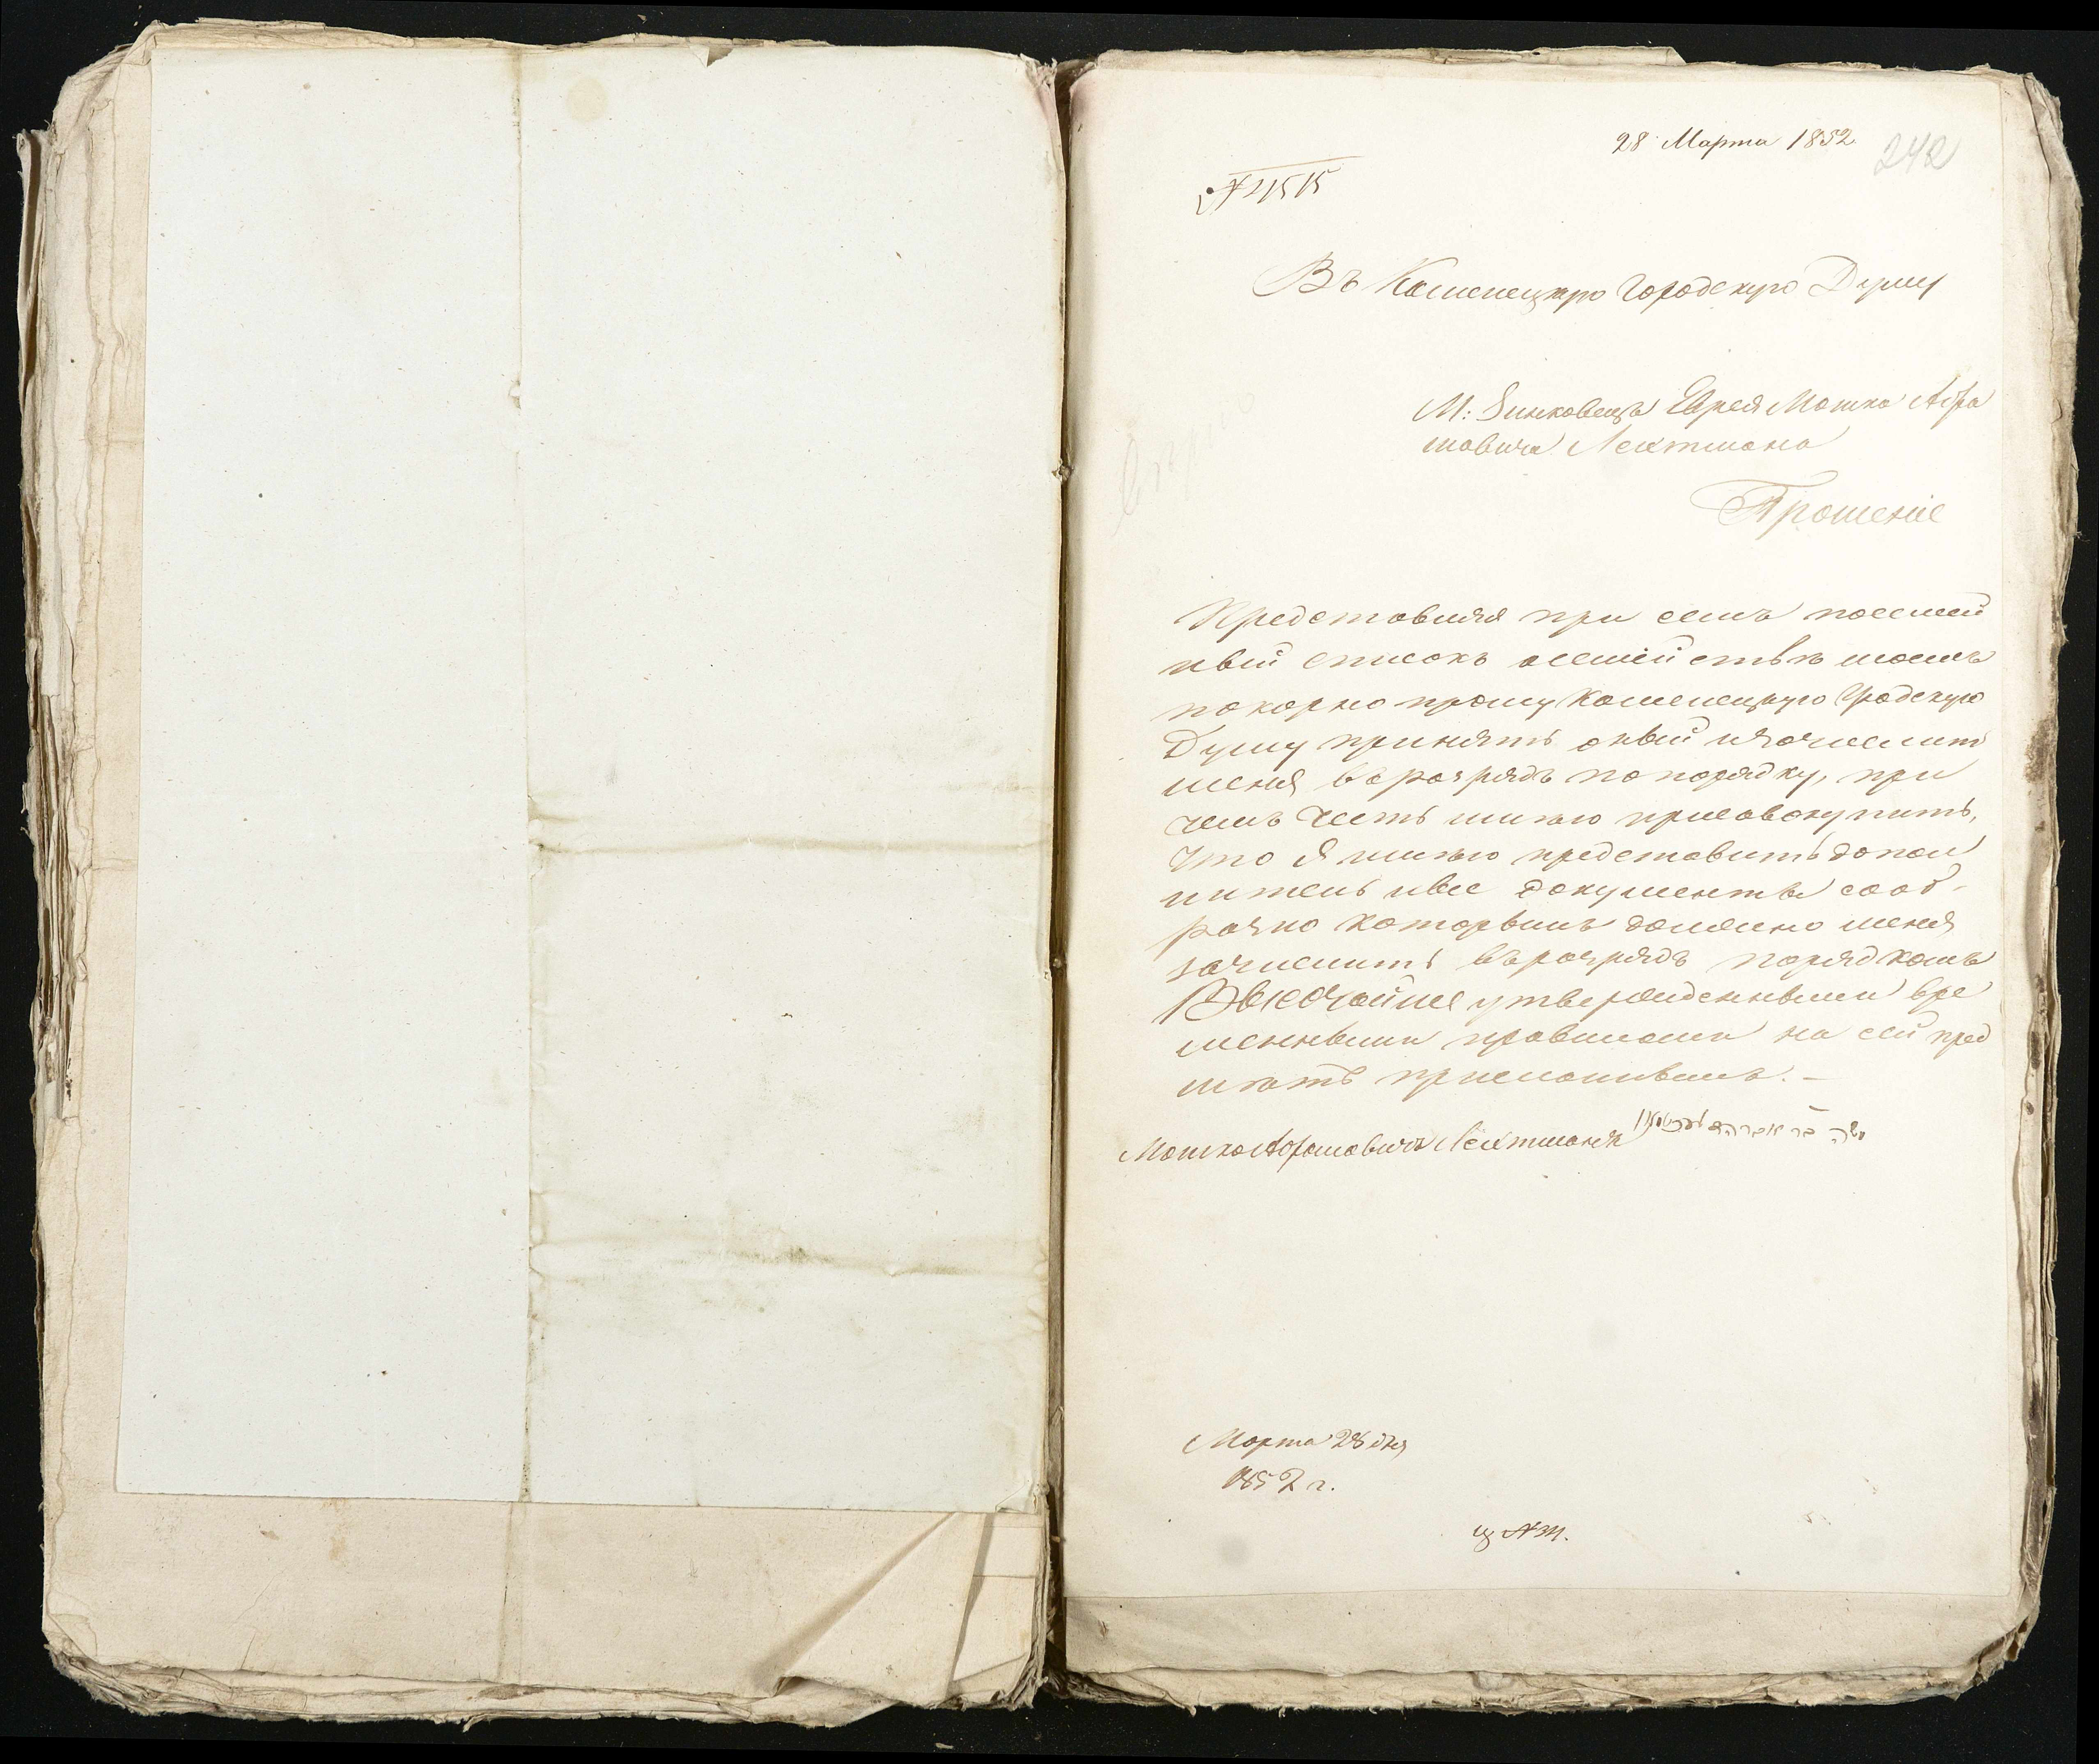 28 Марта 1852
242
№ 1515
Въ Каменецкую Городскую Думу
М: Зинковецъ Еврея Мошка Абра
мовича Лехтмана
Прошеніе
Представляя при семъ посемей
ный списокъ о семействѣ моемъ
покорно прошу Каменецкую Градскую
Думу принять оный и зачислить
меня въ разрядъ по порядку, при
чемъ честь имѣю присовокупить,
что я имѣю представить допол
нительные документы сооб-
разно которымъ должно меня
зачислить въ разрядъ порядкомъ
Высочайше утвержденными вре
менными правилами на сей пред
мѣтъ приложеннымъ. –
Мошко Абрамовичъ Лехтманъ משה בר אברהם לעכטמאן
Марта 28 дня
1852 г.